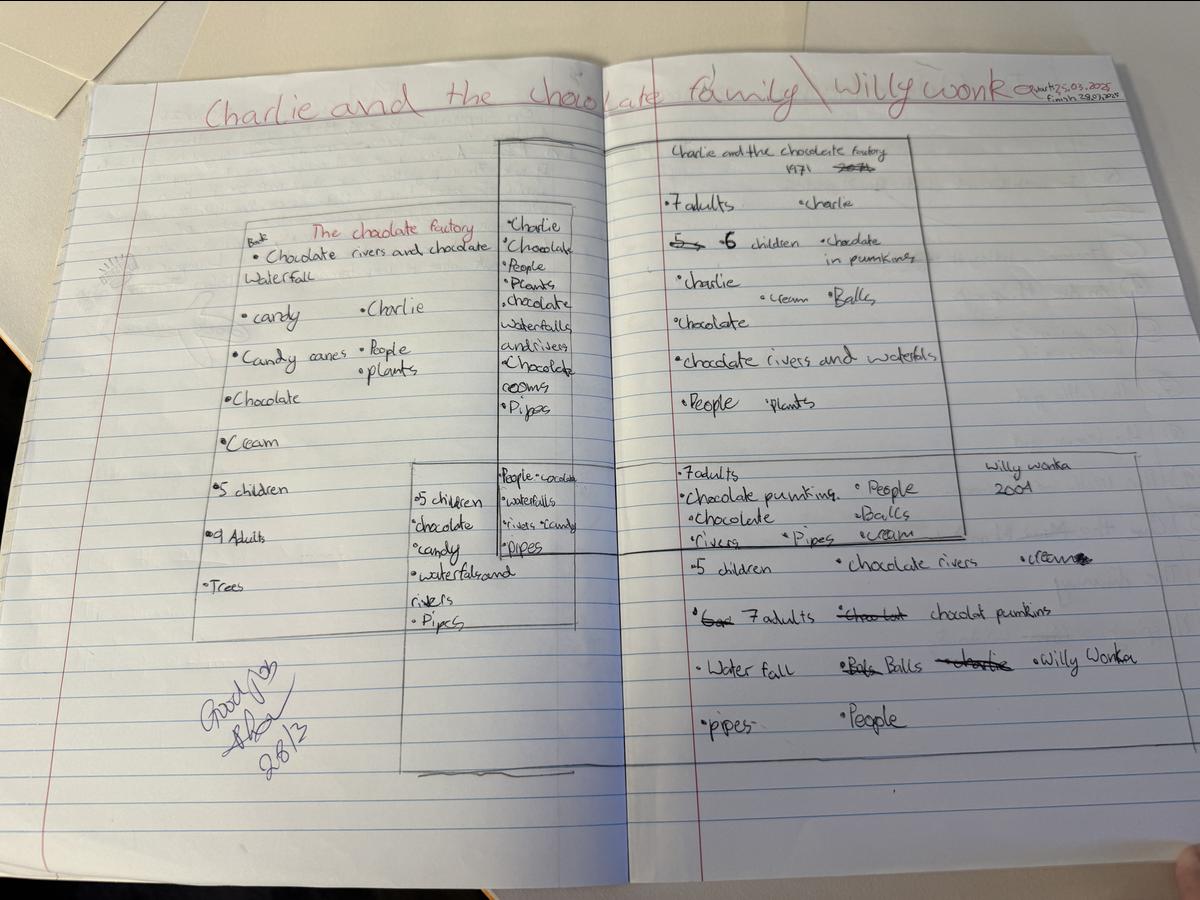 Charlie and the chocolate family \ Willy wonka
start: 25.03.2025
finish 28.03.2025
Book
The chaolate factory
• Chocolate rivers and chocolate
Waterfall
• candy
• Charlie
• Candy canes
• People
• plants
• Chocolate
• Cream
• 5 children
• 9 Adults
• Trees
• Charlie
• Chocolate
• People
• Plants
• chocolate
waterfalls
and rivers
• Chocolate
rooms
• Pipes
Charlie and the chocolate factory
1971
• 7 adults
• Charlie
• 6 children
• Chodate
in pumkins
• Charlie
• cream
• Balls
• Chocolate
• chocolate rivers and waterfals
• People
• Plants
• 5 children
• chocolate
• candy
• waterfals and
rivers
• Pipes
• People • cocolate
• waterfalls
• rivers • candy
• pipes
• 7 adults
• Chocolate pumkins.
• People
• chocolate
• Balls
• rivers
• Pipes
• cream
Willy wonka
• 5 children
• chocolate rivers
• cream
• 7 adults
chocolat pumkins
• Water fall
Balls
• Willy Wonka
• pipes
• People
Good job
28/3